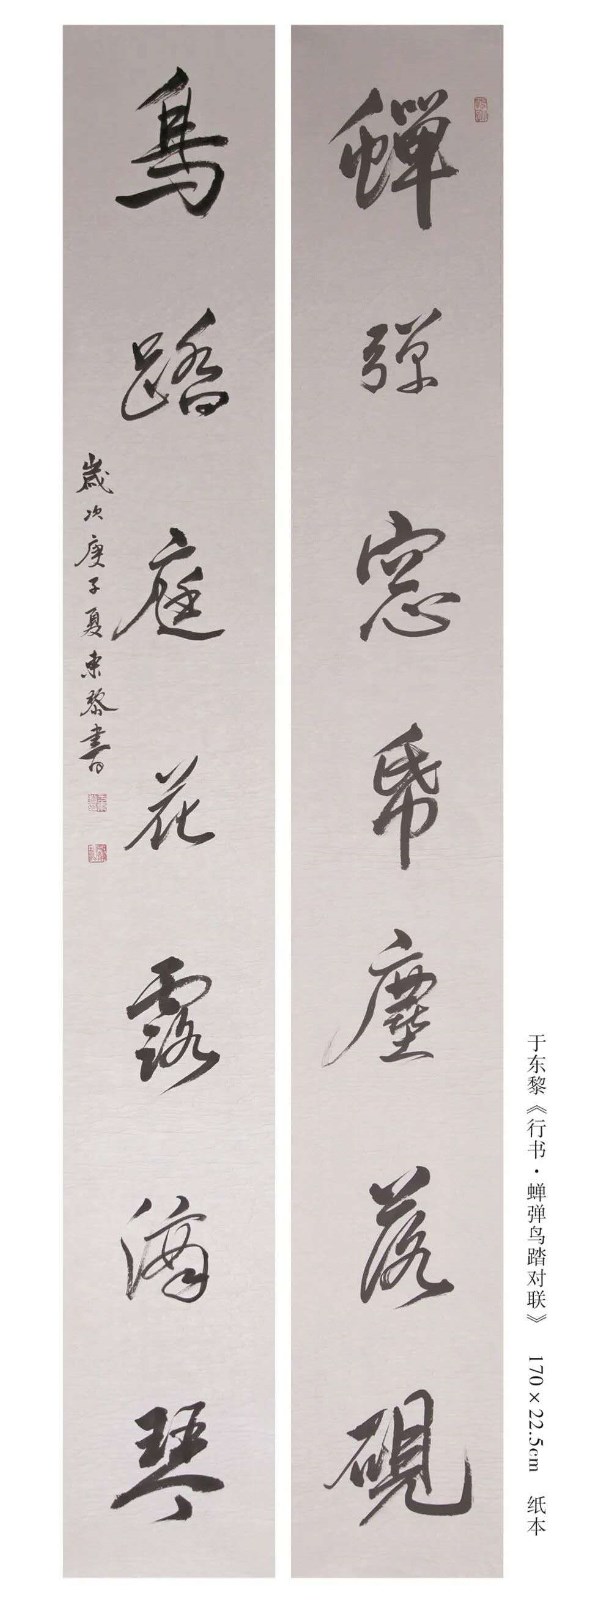 蟬彈窓帋塵落硯
鳥踏庭花露滴琴
歲次庚子夏東黎書
于东黎《行书·蝉弹鸟踏对联》 170×22.5cm 纸本